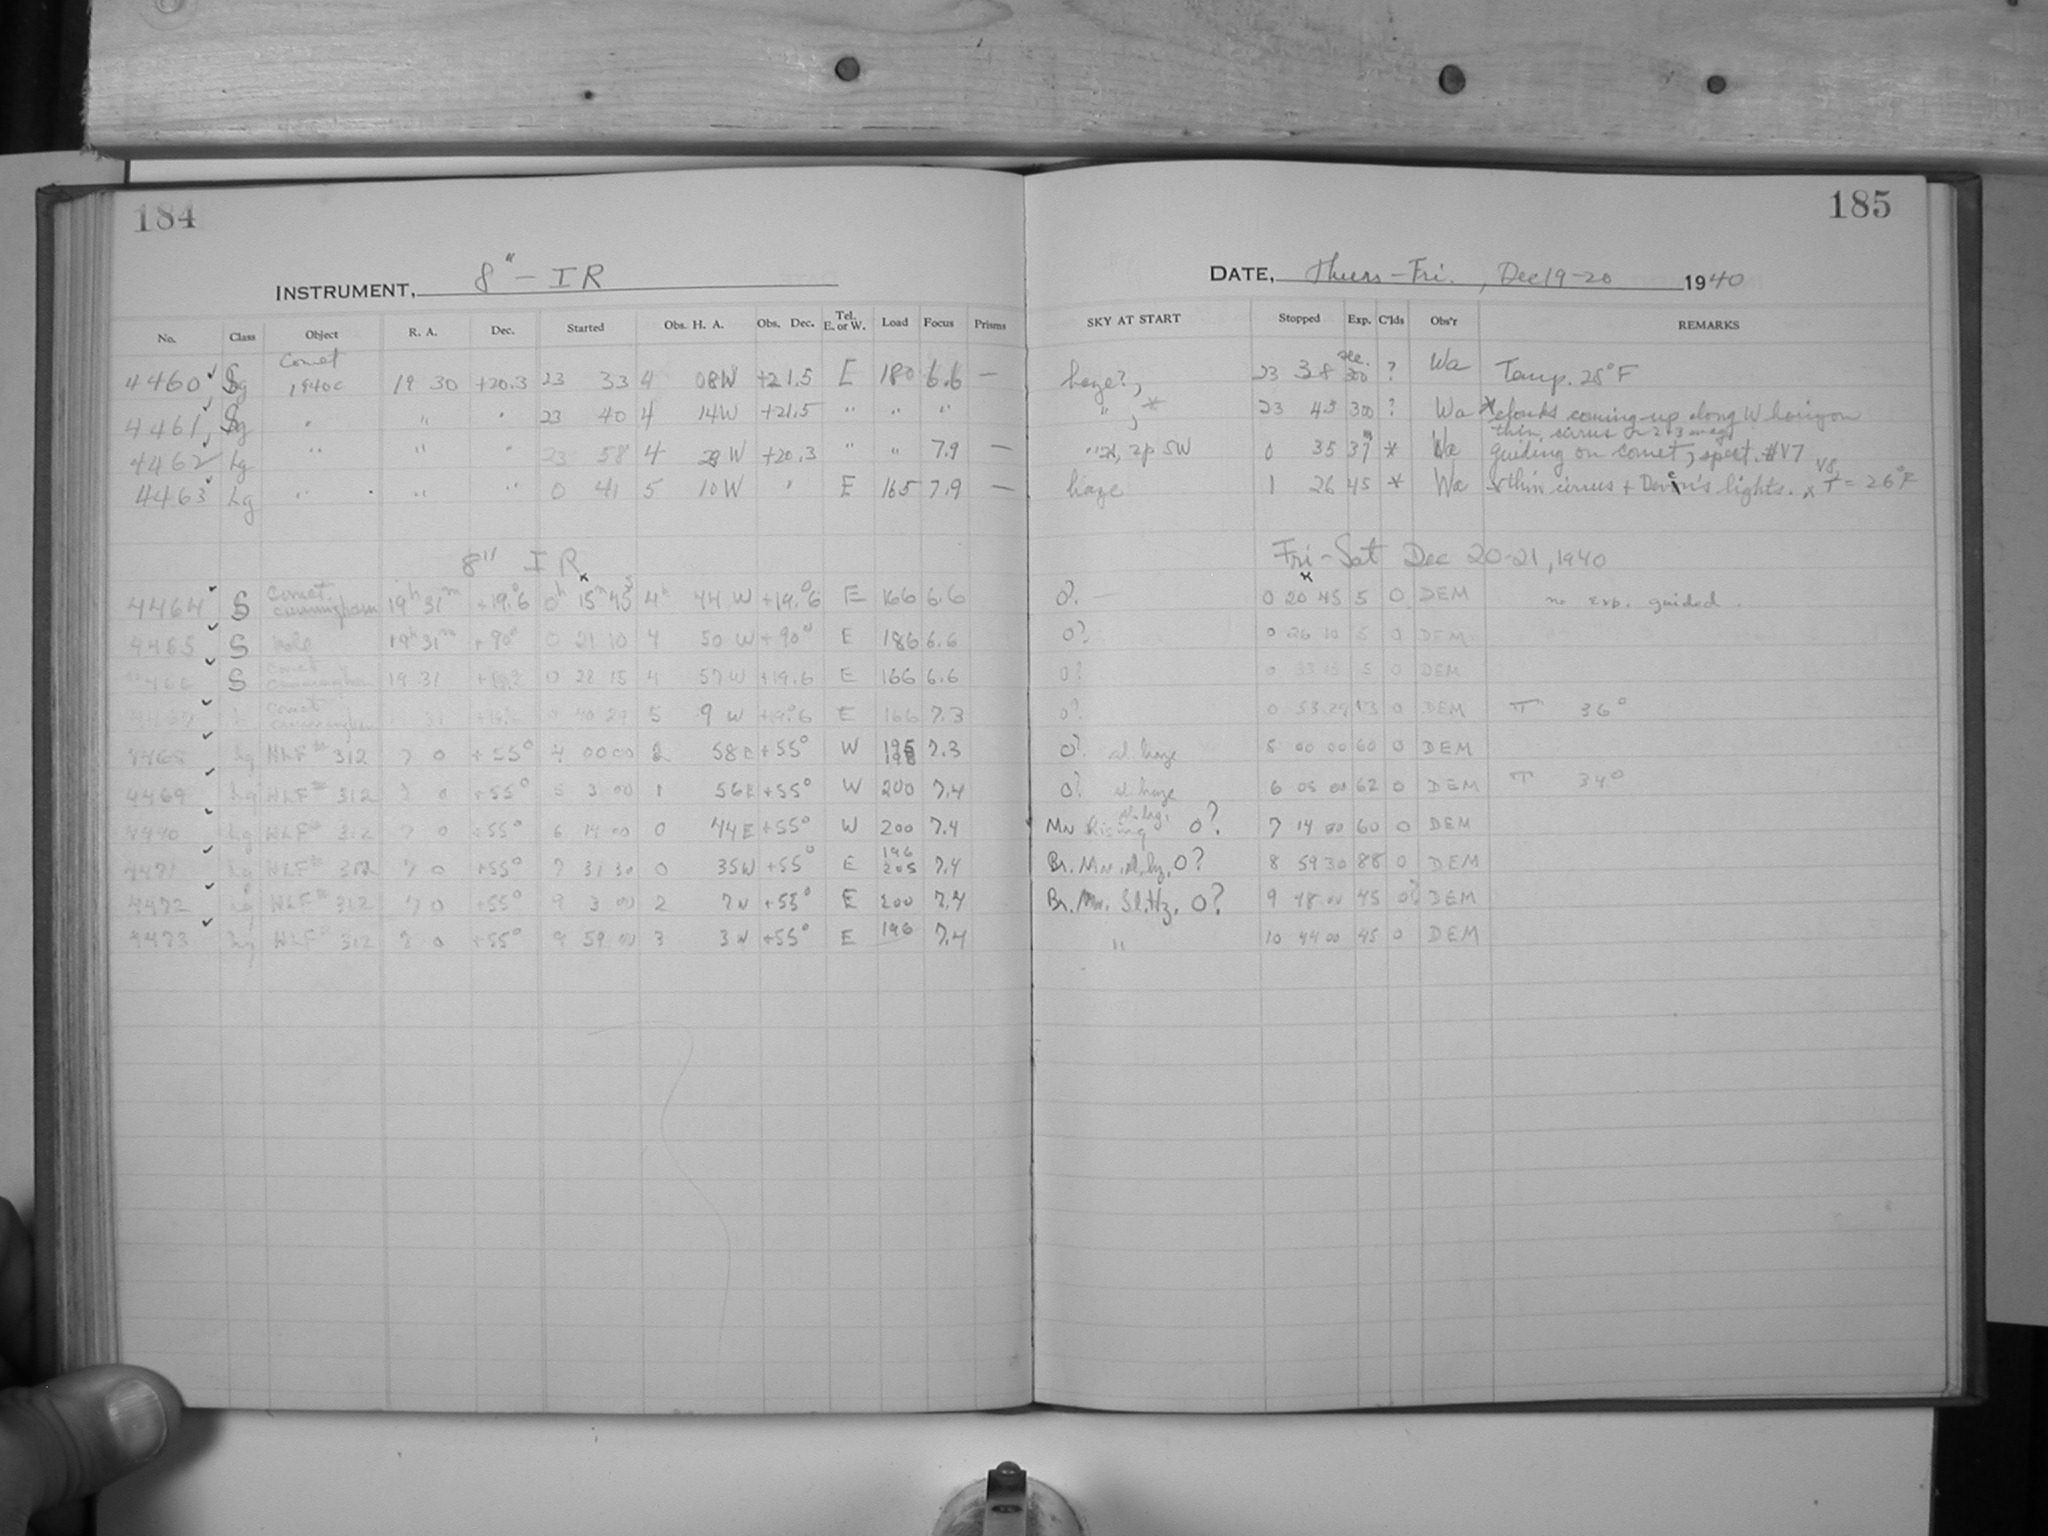 184
185
INSTRUMENT, 8" - IR
DATE, Thurs - Fri., Dec 19-20 1940
No. Class Object R. A. Dec. Started Obs. H. A. Obs. Dec. Tel. E. or W. Load Focus Prisms SKY AT START Stopped Exp. C'lds Obs'r REMARKS
4460 Comet 1940c 19 30 +20.3 23 33 4 08W +21.5 E 180 6.6 — haze?, 23 38 sec. 300 ? Wa Temp. 28°F
4461 " " " 23 40 4 14W +21.5 " " " " , * 23 45 300 ? Wa * clouds coming up along W horizon
thin cirrus
4462 Lg " " " 23 58 4 W +20.3 " " 7.9 — 2p SW 0 35 37 * Wa guiding on comet, spect. #V7
4463 Lg " " " 0 41 5 10W " E 165 7.9 — haze 1 26 45 * Wa thin cirrus + lights. T = 26°F
8" IR Fri - Sat Dec 20-21, 1940
4464 S Comet Cunningham 19h 31m +19.°6 0h 15m 45s 4h 44 W +19.°6 E 166 6.6 0? — 0 20 45 5 0 DEM no exp. guided.
4465 S Pole 19h 31m +90° 0 21 10 4 50 W +90° E 186 6.6 0? 0 26 10 5 0 DEM
4466 S Comet Cunningham 19 31 0 28 15 4 57W +19.6 E 166 6.6 0? 0 33 15 5 0 DEM
Comet Cunningham 5 9 W +19.°6 E 166 7.3 0? 0 53 29 13 0 DEM T 36°
4468 Lg HLF# 312 7 0 +55° 4 00 00 2 58E +55° W 195 198 7.3 0? sl. haze 5 00 00 60 0 DEM
4469 Lg HLF# 312 7 0 +55° 5 3 00 1 56E +55° W 200 7.4 0? sl. haze 6 05 00 62 0 DEM T 34°
4470 Lg HLF# 312 7 0 +55° 6 14 00 0 44E +55° W 200 7.4 Mn Rising 0? 7 14 00 60 0 DEM
4471 Lg HLF# 312 7 0 +55° 7 31 30 0 35W +55° E 196 205 7.4 Br. Mn. sl. hz. 0? 8 59 30 88 0 DEM
4472 Lg HLF# 312 7 0 +55° 9 3 00 2 7W +55° E 200 7.4 Br. Mn. Sl. Hz. 0? 9 48 00 45 0? DEM
4473 Lg HLF# 312 7 0 +55° 9 59 00 3 3W +55° E 196 7.4 " 10 44 00 45 0 DEM